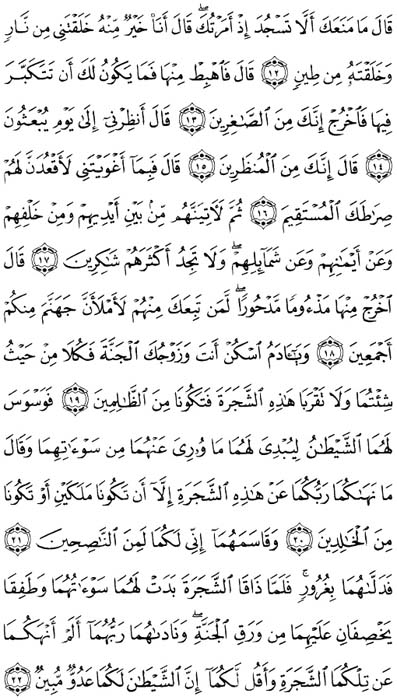 قَالَ مَا مَنَعَكَ أَلَّا تَسْجُدَ إِذْ أَمَرْتُكَ ۖ قَالَ أَنَا۠ خَيْرٌ مِّنْهُ خَلَقْتَنِى مِن نَّارٍ
وَخَلَقْتَهُۥ مِن طِينٍ ۝١٢ قَالَ فَٱهْبِطْ مِنْهَا فَمَا يَكُونُ لَكَ أَن تَتَكَبَّرَ
فِيهَا فَٱخْرُجْ إِنَّكَ مِنَ ٱلصَّـٰغِرِينَ ۝١٣ قَالَ أَنظِرْنِىٓ إِلَىٰ يَوْمِ يُبْعَثُونَ
۝١٤ قَالَ إِنَّكَ مِنَ ٱلْمُنظَرِينَ ۝١٥ قَالَ فَبِمَآ أَغْوَيْتَنِى لَأَقْعُدَنَّ لَهُمْ
صِرَٰطَكَ ٱلْمُسْتَقِيمَ ۝١٦ ثُمَّ لَـَٔاتِيَنَّهُم مِّنۢ بَيْنِ أَيْدِيهِمْ وَمِنْ خَلْفِهِمْ
وَعَنْ أَيْمَـٰنِهِمْ وَعَن شَمَآئِلِهِمْ ۖ وَلَا تَجِدُ أَكْثَرَهُمْ شَـٰكِرِينَ ۝١٧ قَالَ
ٱخْرُجْ مِنْهَا مَذْءُومًا مَّدْحُورًا ۖ لَّمَن تَبِعَكَ مِنْهُمْ لَأَمْلَأَنَّ جَهَنَّمَ مِنكُمْ
أَجْمَعِينَ ۝١٨ وَيَـٰٓـَٔادَمُ ٱسْكُنْ أَنتَ وَزَوْجُكَ ٱلْجَنَّةَ فَكُلَا مِنْ حَيْثُ
شِئْتُمَا وَلَا تَقْرَبَا هَـٰذِهِ ٱلشَّجَرَةَ فَتَكُونَا مِنَ ٱلظَّـٰلِمِينَ ۝١٩ فَوَسْوَسَ
لَهُمَا ٱلشَّيْطَـٰنُ لِيُبْدِىَ لَهُمَا مَا وُۥرِىَ عَنْهُمَا مِن سَوْءَٰتِهِمَا وَقَالَ
مَا نَهَىٰكُمَا رَبُّكُمَا عَنْ هَـٰذِهِ ٱلشَّجَرَةِ إِلَّآ أَن تَكُونَا مَلَكَيْنِ أَوْ تَكُونَا
مِنَ ٱلْخَـٰلِدِينَ ۝٢٠ وَقَاسَمَهُمَآ إِنِّى لَكُمَا لَمِنَ ٱلنَّـٰصِحِينَ ۝٢١
فَدَلَّىٰهُمَا بِغُرُورٍ ۚ فَلَمَّا ذَاقَا ٱلشَّجَرَةَ بَدَتْ لَهُمَا سَوْءَٰتُهُمَا وَطَفِقَا
يَخْصِفَانِ عَلَيْهِمَا مِن وَرَقِ ٱلْجَنَّةِ ۖ وَنَادَىٰهُمَا رَبُّهُمَآ أَلَمْ أَنْهَكُمَا
عَن تِلْكُمَا ٱلشَّجَرَةِ وَأَقُل لَّكُمَآ إِنَّ ٱلشَّيْطَـٰنَ لَكُمَا عَدُوٌّ مُّبِينٌ ۝٢٢